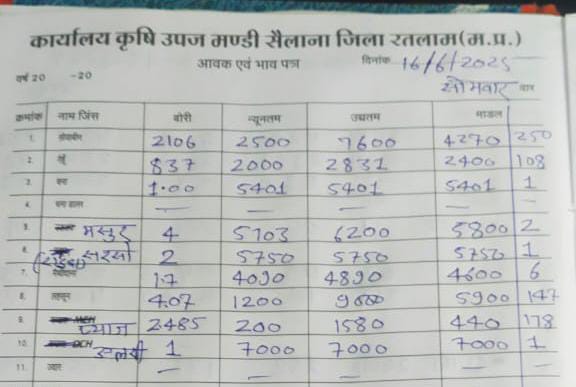 कार्यालय कृषि उपज मण्डी सैलाना जिला रतलाम(म.प्र.)
आवक एवं भाव पत्र दिनांक 16/6/2025
वर्ष 20 -20 सोमवार वार
क्रमांक नाम जिंस बोरी न्यूनतम उच्चतम माडल
1. सोयाबीन 2106 2500 7600 4270 250
2. गेहूं 837 2000 2831 2400 108
3. चना 1.00 5401 5401 5401 1
4. चना डालर — — — —
5. मसुर 4 5703 6200 5800 2
6. सरसो 2 5750 5750 5750 1
7. मेथीदाना 17 4090 4890 4600 6
8. लहसुन 407 1200 5900 147
9. प्याज 2485 200 1580 440 178
10. अलसी 1 7000 7000 7000 1
11. ज्वार — — — —